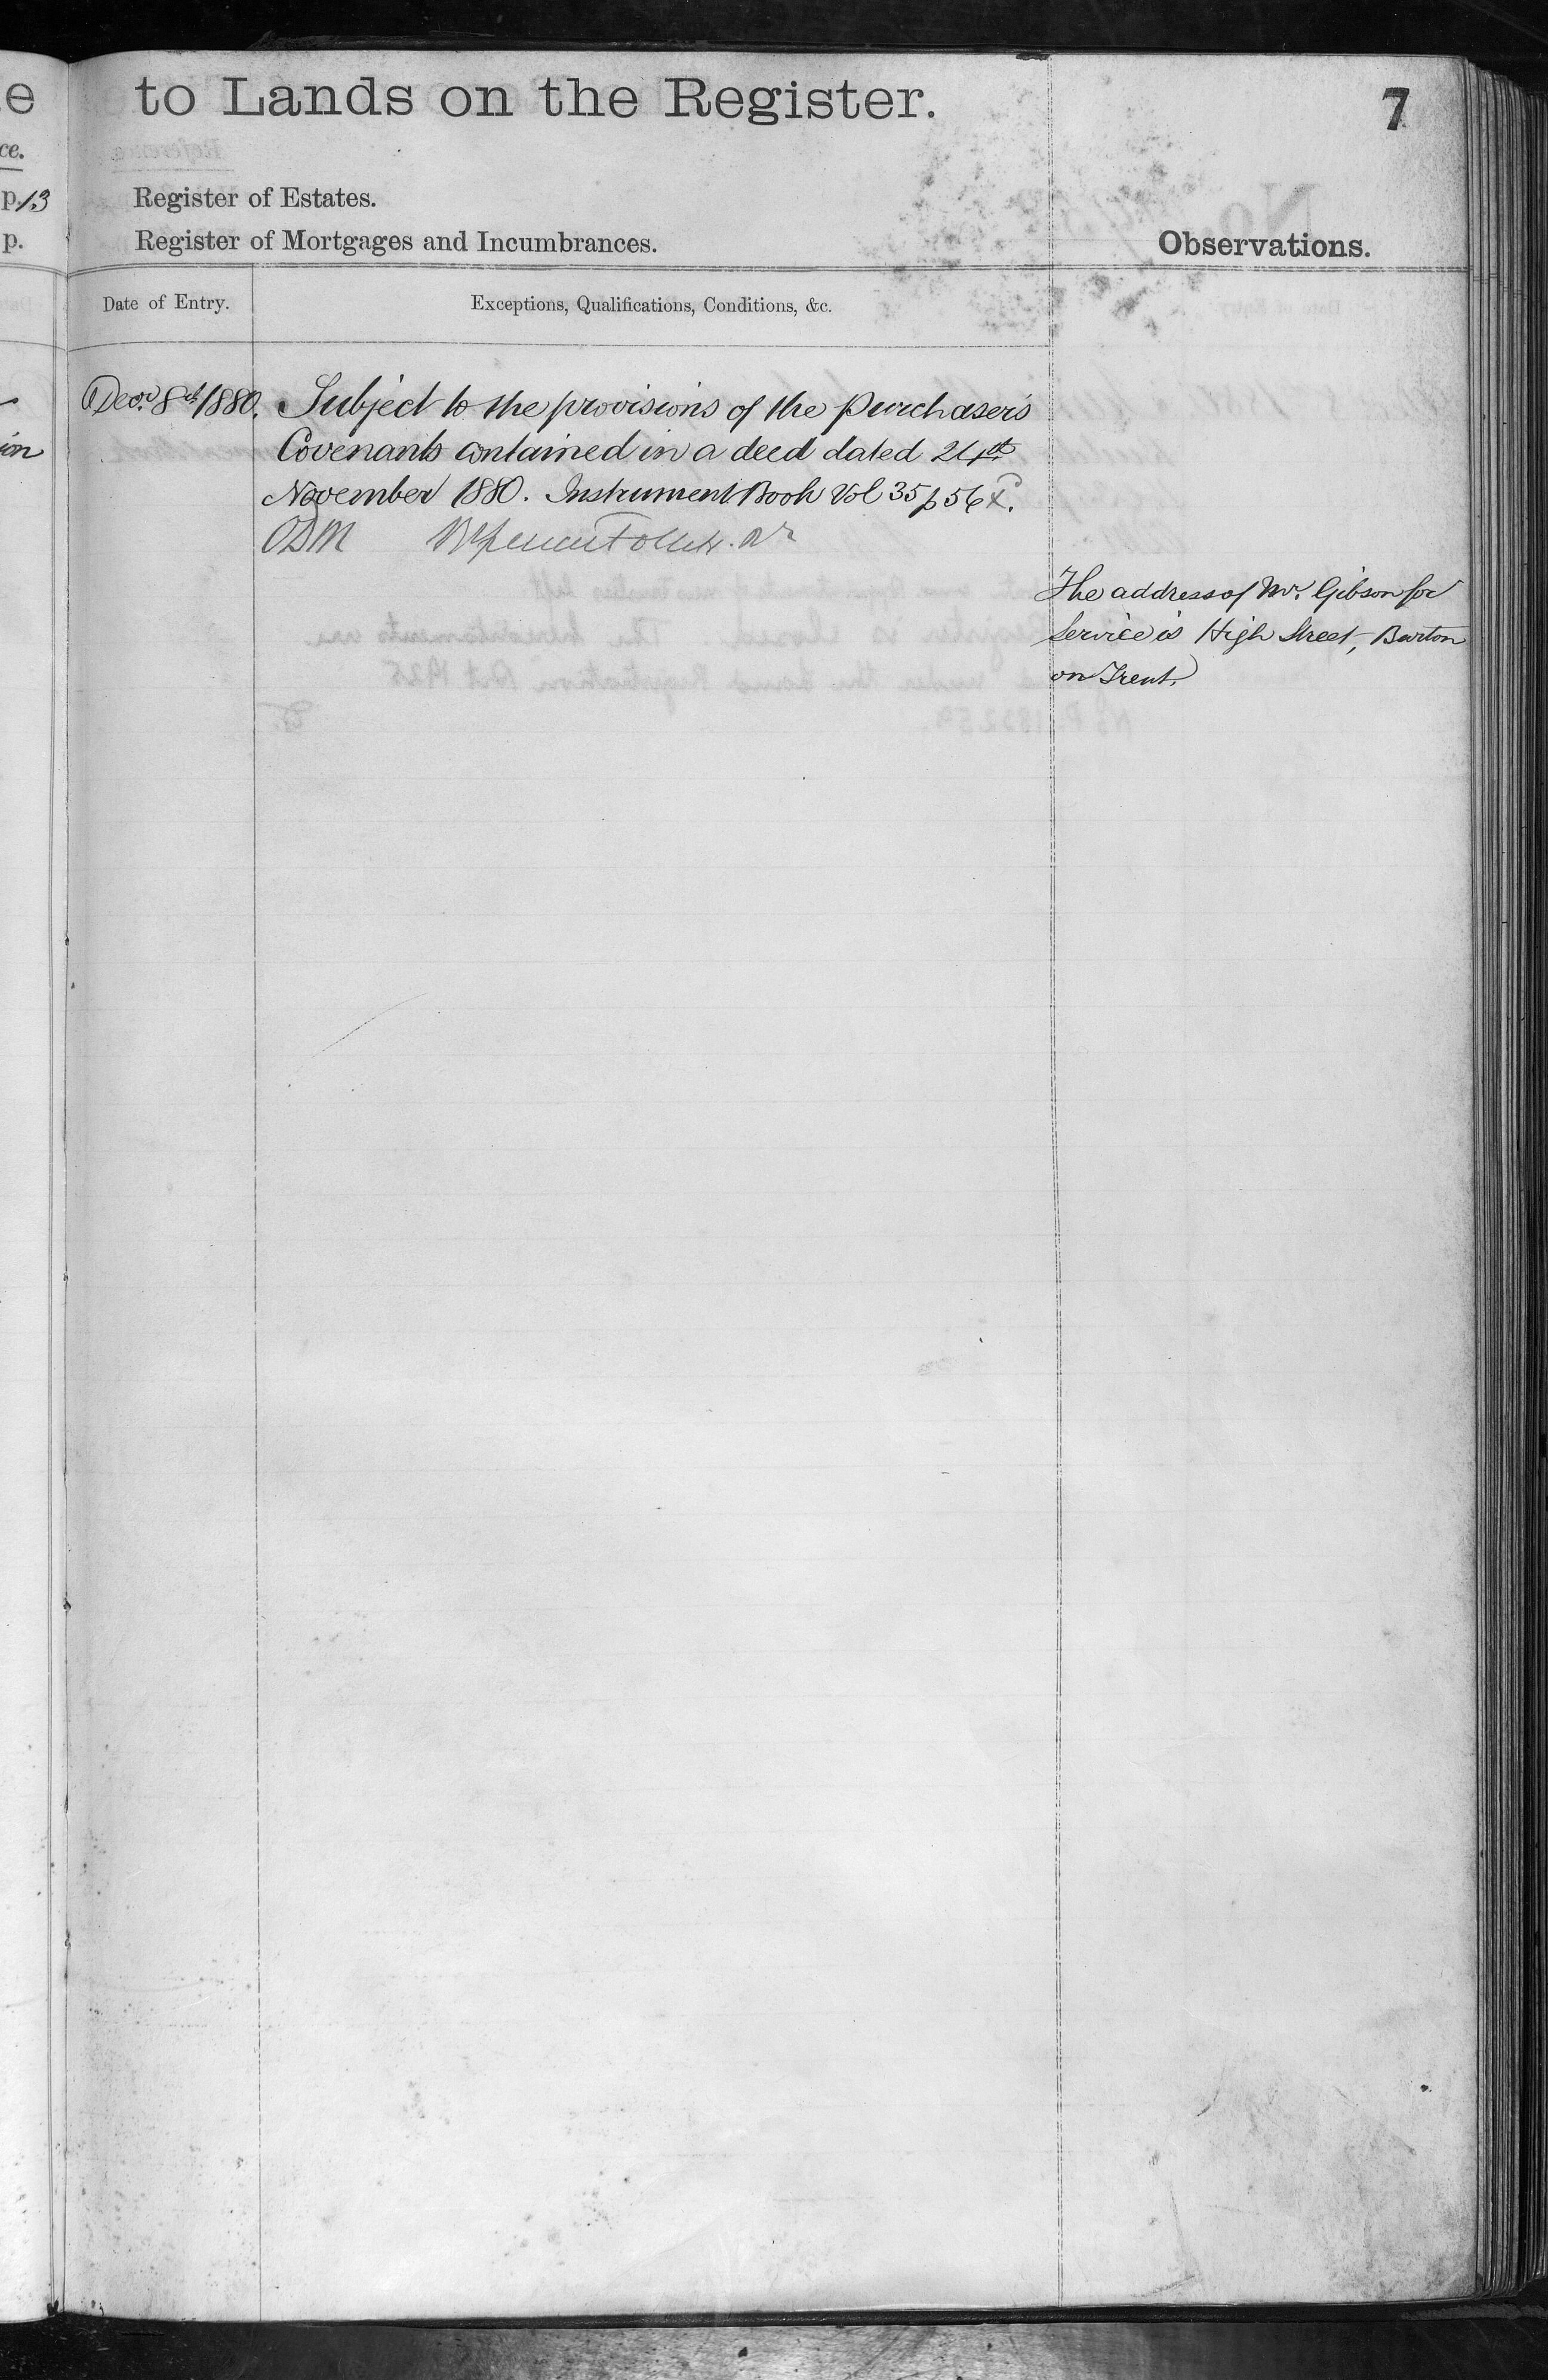 to Lands on the Register.
7
p. 13
p.
Register of Estates.
Register of Mortgages and Incumbrances.
Observations.
Date of Entry.
Exceptions, Qualifications, Conditions, &c.
Decr. 8th 1880. Subject to the provisions of the purchaser's
Covenants contained in a deed dated 24th
November 1880. Instrument Book Vol 35 p 56
The address of Mr. Gibson for
service is High Street, Burton
on Trent.